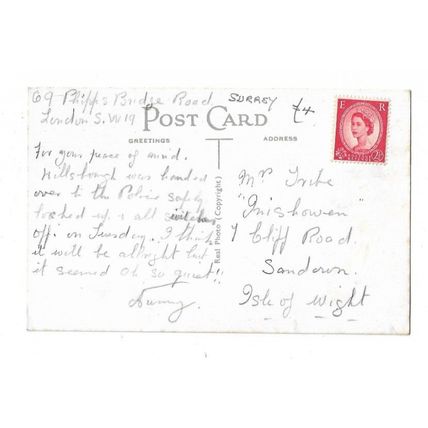 69 Phipps Bridge Road
London S.W19
SURREY
£4
POST CARD
GREETINGS
ADDRESS
For your peace of mind.
Hillsbough was handed
over to the Police safely
locked up & all switches
off. on Tuesday. I think
it will be allright but
it seemed oh so quiet!!
Real Photo (Copyright)
Mr Tribe
"Inishowen"
7 Cliff Road.
Sandown.
Isle of Wight
E R